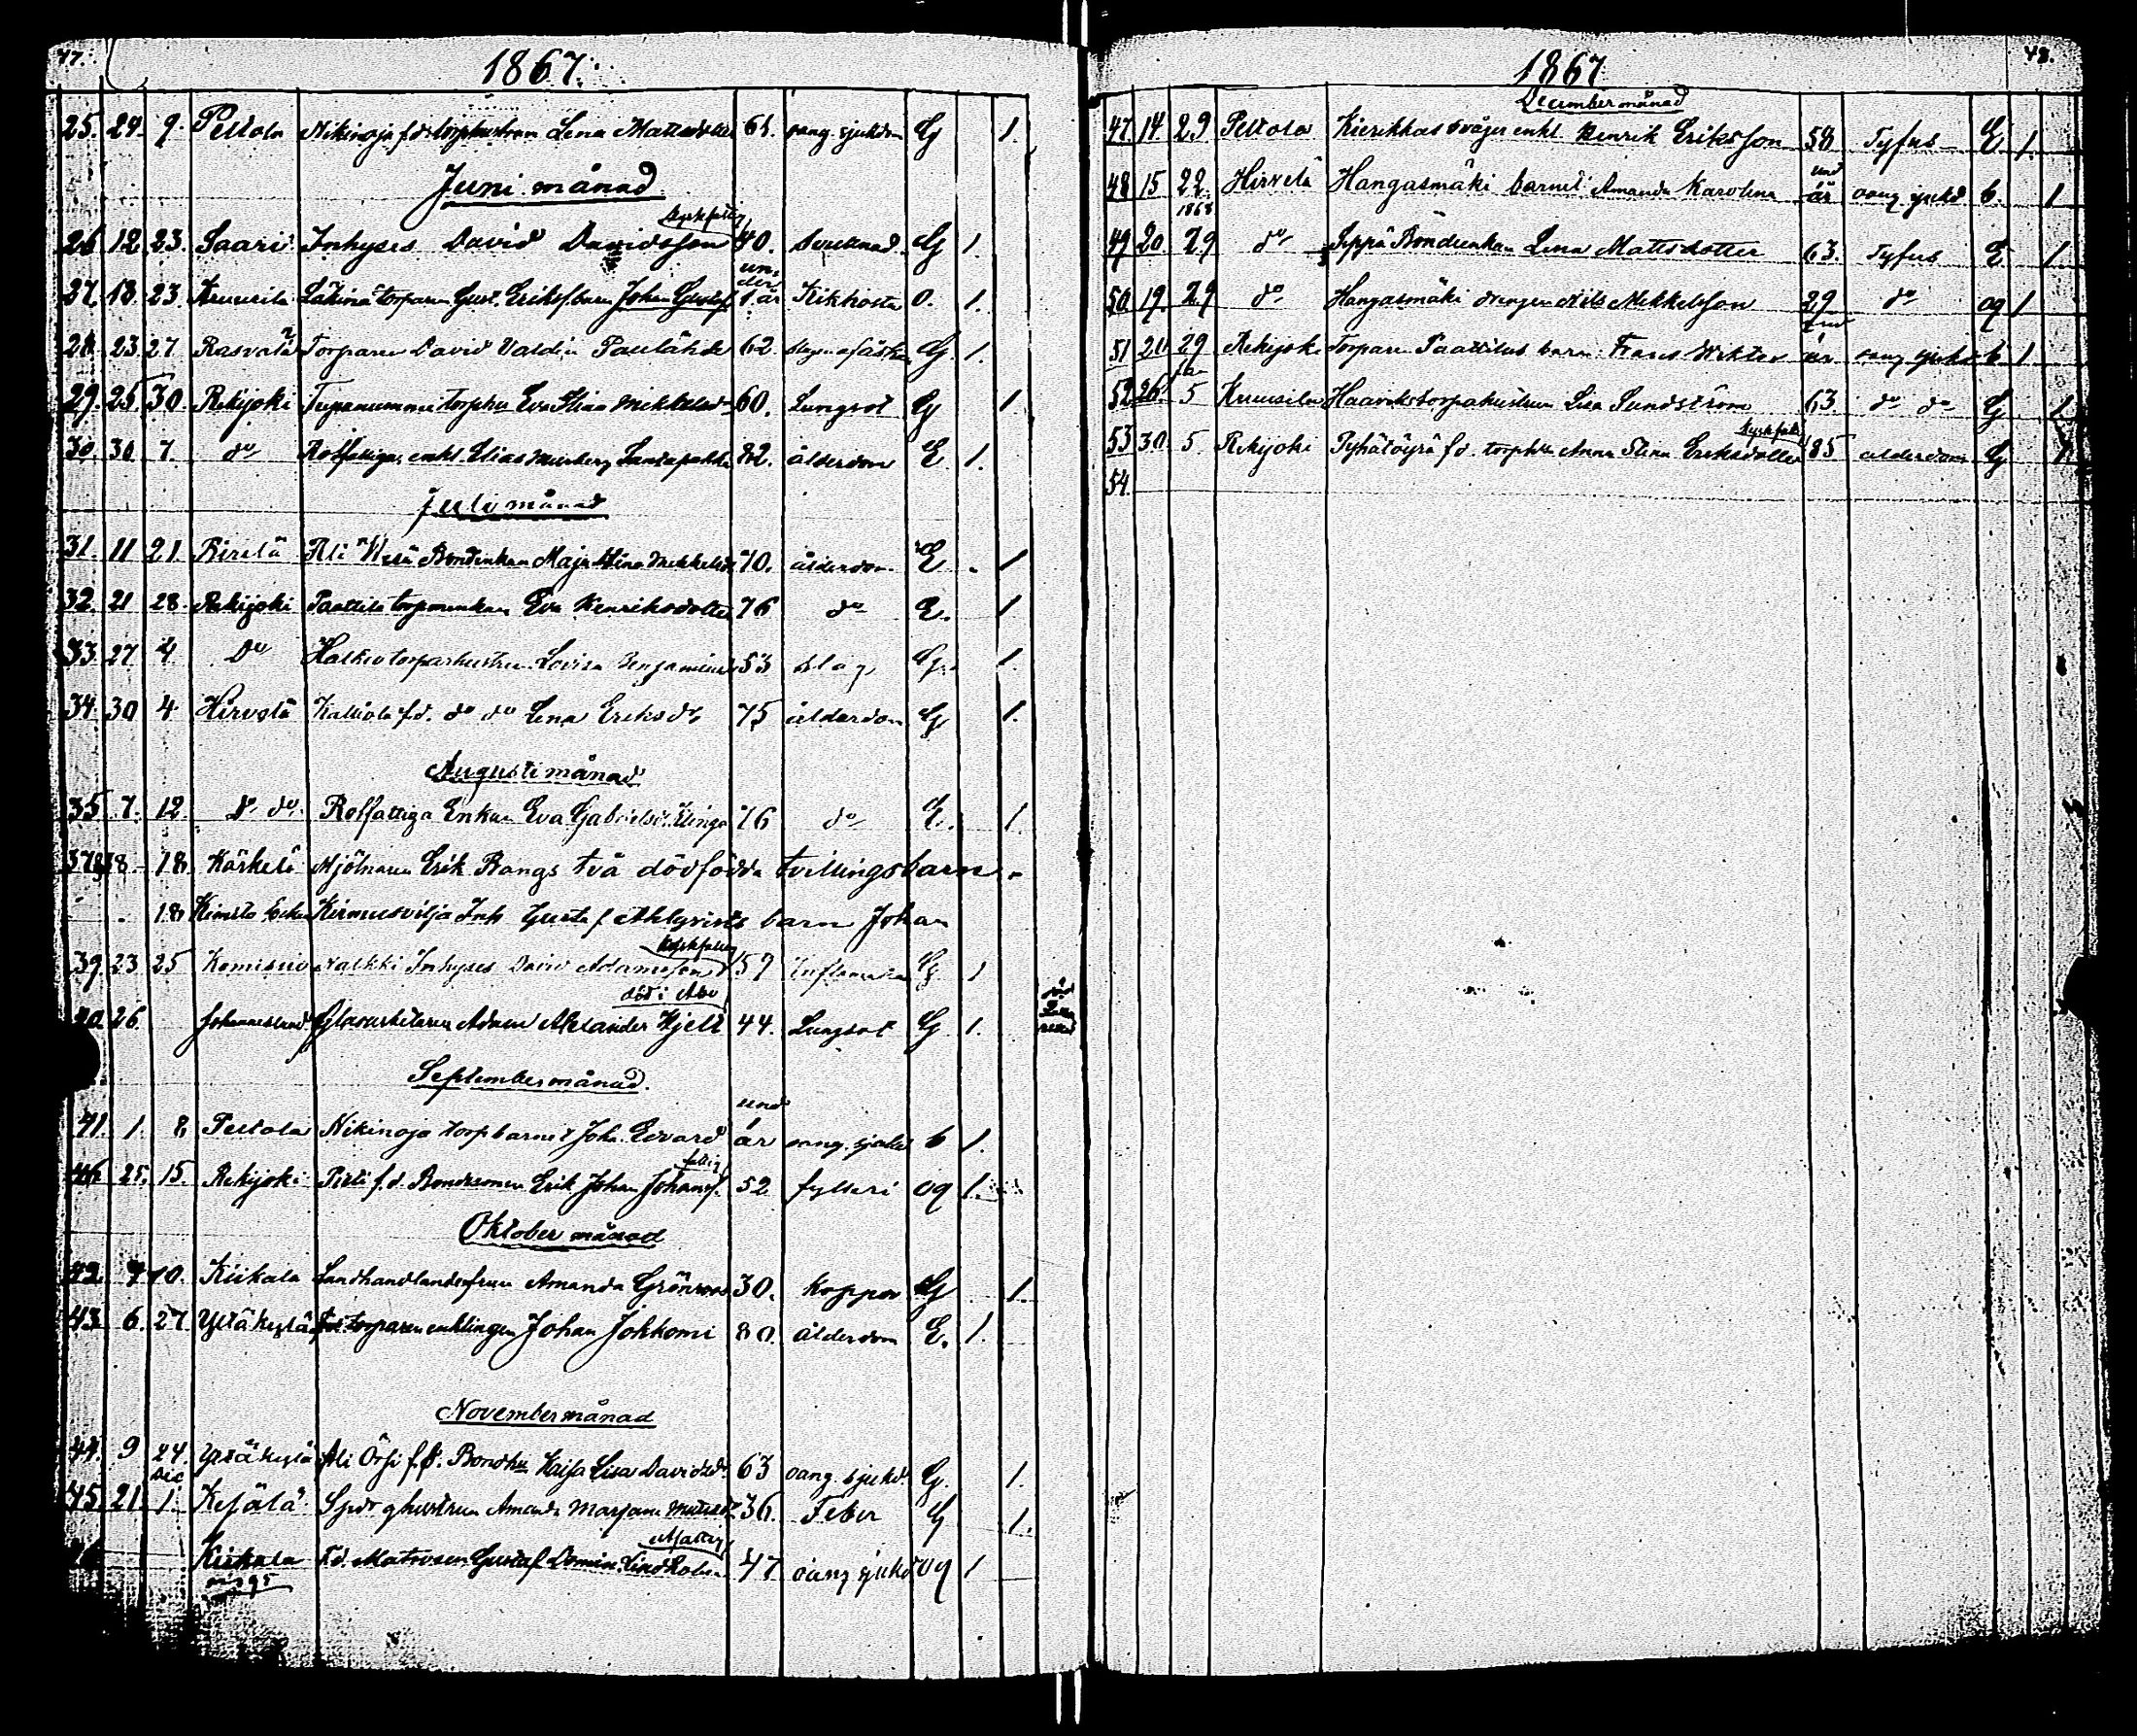 47.
1867.
25. 24. 9. Peltola Nikinoja f.d. torphustrun Lena Mattsdotter 61. oang. sjukdom G 1.
Juni månad
kyrkfattig
26 12 23. Saari Inhyses David Davidsson 40. G 1.
un-
der
27. 13. 23. Kruusila torparen Gust. Eriks. barn Johan Gustaf 1. år Kikhosta o. 1.
28. 23. 27. Rasvala Torparen David Valdin 62. G. 1.
29. 25. 30. Rekijoki torphu Eva Stina Mikkelsd. 60. Lungsot G 1.
30. 30. 7. do Rotfattiga enkl. Elias 82. ålderdom E. 1.
Juli månad
31. 11 21. Bondenkan Maja Stina Mikkelsd. 70. ålderdom E. 1
32. 21 28. Rekijoki Paattila torparenkan Eva Henriksdotter 76 do E. 1
33. 27 4. Do torparhustrun Lovisa Benjamins 53 slag G. 1.
34. 30 4 Hirvelä Kalliola f.d. do do Lena Eriksdr 75 ålderdom G 1.
Augusti månad
35 7. 12. do do. Rotfattiga Enkan Eva Gabrielsd. 76 do E. 1.
18. 18. Kärkelä Mjölnaren Erik Bangs två dödfödda tvillingsbarn
18. Inh Gustaf Ahlqvists barn Johan
kyrkfattig
39. 23 25 Komisuo Inhyses David Adamsson 57 G. 1
död i Åbo
40. 26. Johanneslund Glasarbetaren Adam Alexander Hjelt 44. Lungsot G 1.
September månad.
und
41. 1. 8. Peltola Nikinoja torpbarnet Joh. Edvard år oang. sjukd. b 1.
fattig
46 25. 15. Rekijoki f.d. Bondesonen Erik Johan Johans. 52 fylleri og 1.
Oktober månad
42. 4 10. Kiikala Landhandlandefrun Amanda Grönroos 30. koppor G 1.
43. 6. 27 Yltäkylä torparen enklingen Johan Jokkomi 80. ålderdom E. 1.
November månad
44. 9 24. Yltäkylä Ali Örsi f.d. Bondhu Kaisa Lisa Davidsd. 63 oang. sjukd. G. 1.
Dec
45. 21. 1. Kesälä hustrun Amanda Marjana 36. Feber G 1.
fattig
Kiikala f.d. Matrosen Gustaf Lindholm 47 oang sjukd og 1
48.
1867
December månad
47. 14. 29 Peltola Kierikkas svåger enkl. Henrik Eriksson 58 Tyfus E. 1.
und
48 15 22. Hirvelä Hangasmäki barnet Amanda Karolina år oang sjukd b. 1
1868
49 20. 29 do Seppä Bondenkan Lena Mattsdotter 63. Tyfus E 1
50. 19. 29 do Hangasmäki drengen Nils Mikkelsson 29 do og 1
und
51 20 29 Rekijoki Torparen Paattilas barn Frans Wiktor år oang sjukd b 1
52 26. 5 Kruusila torparhustrun Lisa Sundström 63. do do G 1
kyrkfatt
53 30. 5. Rekijoki f.d. torphu Anna Stina Eriksdotter 85 ålderdom G 1
54.